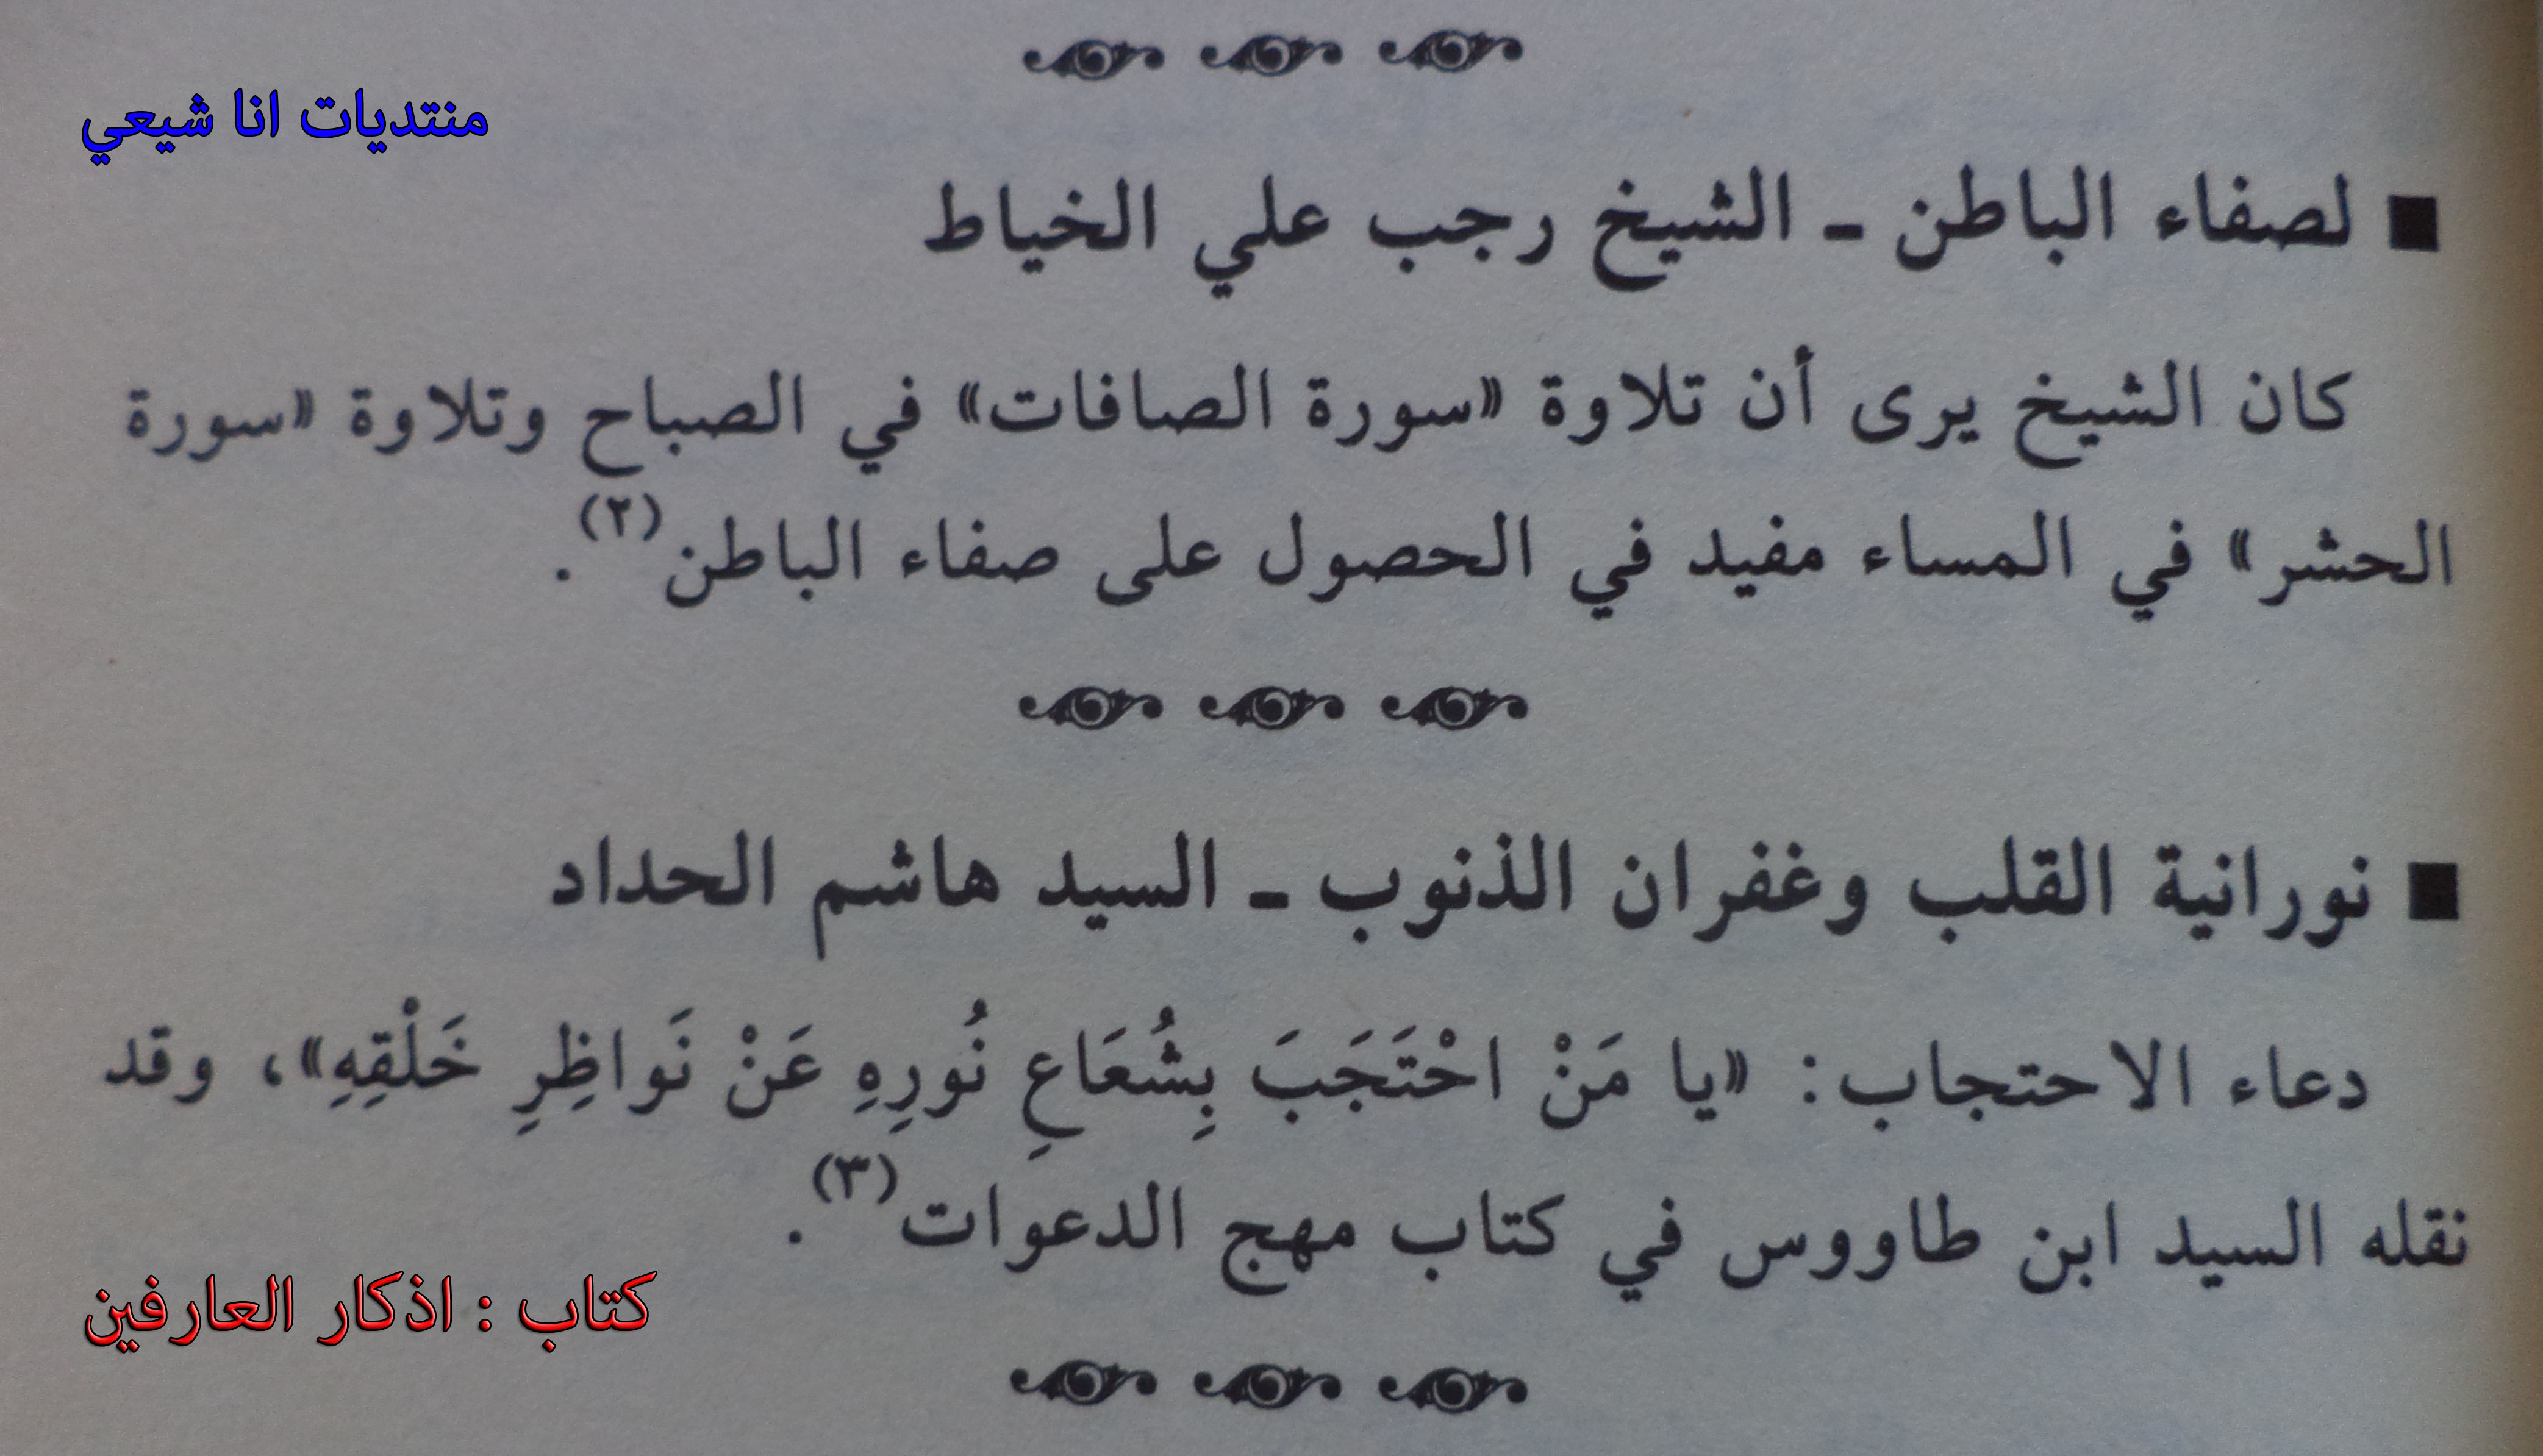 منتديات انا شيعي
■ لصفاء الباطن ـ الشيخ رجب علي الخياط
كان الشيخ يرى أن تلاوة «سورة الصافات» في الصباح وتلاوة «سورة
الحشر» في المساء مفيد في الحصول على صفاء الباطن(٢).
■ نورانية القلب وغفران الذنوب ـ السيد هاشم الحداد
دعاء الاحتجاب: «يا مَنْ احْتَجَبَ بِشُعَاعِ نُورِهِ عَنْ نَواظِرِ خَلْقِهِ»، وقد
نقله السيد ابن طاووس في كتاب مهج الدعوات(٣).
كتاب : اذكار العارفين